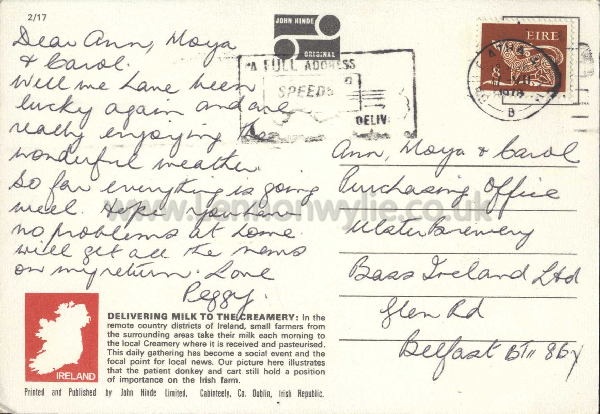 2/17
JOHN HINDE
ORIGINAL
EIRE
8
A FULL ADDRESS
SPEEDS
DELIV
B
Dear Ann, Moya
& Carol.
Well we have been
lucky again and are
really enjoying the
wonderful weather.
So far everything is going
well. Hope you have
no problems at home
will get all the news
on my return. Love
Peggy.
Ann, Moya & Carol
Purchasing Office
Ulster Brewery
Bass Ireland Ltd
Glen Rd
Belfast BT11 8BY
www.Lennonwylie.co.uk
IRELAND
DELIVERING MILK TO THE CREAMERY: In the
remote country districts of Ireland, small farmers from
the surrounding areas take their milk each morning to
the local Creamery where it is received and pasteurised.
This daily gathering has become a social event and the
focal point for local news. Our picture here illustrates
that the patient donkey and cart still hold a position
of importance on the Irish farm.
Printed and Published by John Hinde Limited, Cabinteely, Co. Dublin, Irish Republic.